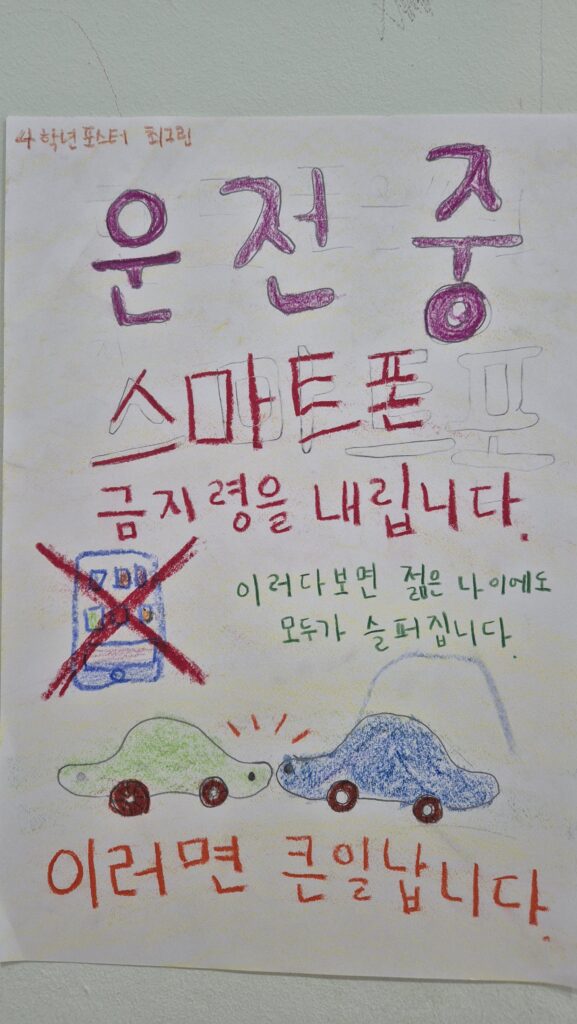 4학년포스터 최그림
운전중
스마트폰
금지령을 내립니다.
이러다보면 젊은 나이에도
모두가 슬퍼집니다.
이러면 큰일납니다.